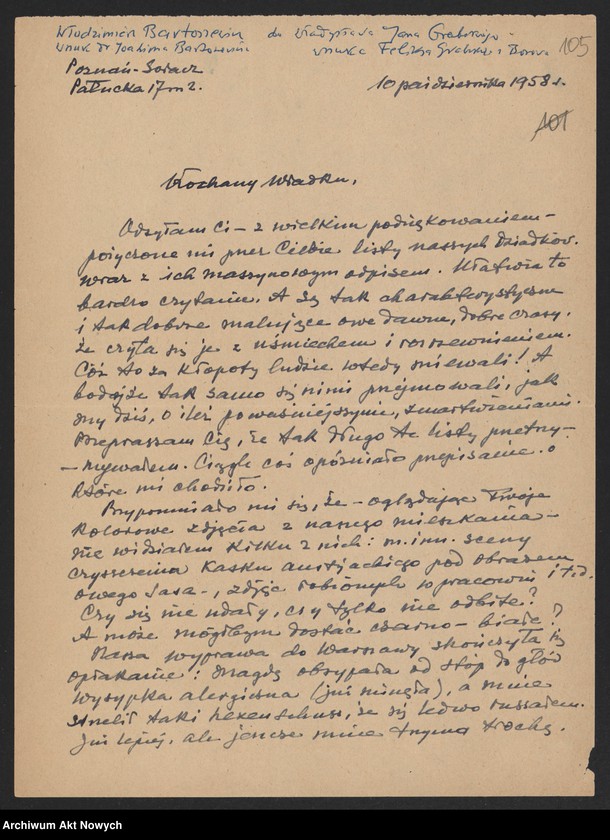 Włodzimierz Bartoszewicz do Władysława Jana Grabskiego -
wnuk dr Joachima Bartoszewicza wnuka Feliksa Grabskiego z Borowa 105
Poznań-Sołacz
Pałucka 17 m 2. 10 października 1958 r.
101
Kochany Władku,
Odsyłam Ci - z wielkim podziękowaniem -
pożyczone mi przez Ciebie listy naszych Dziadków.
wraz z ich maszynowym odpisem. Ułatwia to
bardzo czytanie. A są tak charakterystyczne
i tak dobrze malujące owe dawne, dobre czasy,
że czyta się je z uśmiechem i rozrzewnieniem.
Cóż to za kłopoty ludzie wtedy miewali! A
bodajże tak samo się nimi przejmowali, jak
my dziś, o ileż poważniejszymi, zmartwieniami.
Przepraszam Cię, że tak długo te listy przetrzy-
-mywałem. Ciągle coś opóźniało przepisanie. o
które mi chodziło.
Przypomniało mi się, że - oglądając Twoje
kolorowe zdjęcia z naszego mieszkania -
nie widziałem kilku z nich: m. inn. sceny
czyszczenia kasku austrjackiego pod obrazem
owego Sasa -, zdjęć robionych w pracowni i t.d.
Czy się nie udały, czy tylko nie odbite?
A może mógłbym dostać czarno-białe?
Nasza wyprawa do Warszawy skończyła się
opłakanie: Magdę obsypała od stóp do głów
wysypka alergiczna (już minęła), a mnie
strzelił taki hexenschuss, że się ledwo ruszałem.
Już lepiej, ale jeszcze mnie trzyma trochę.
Archiwum Akt Nowych